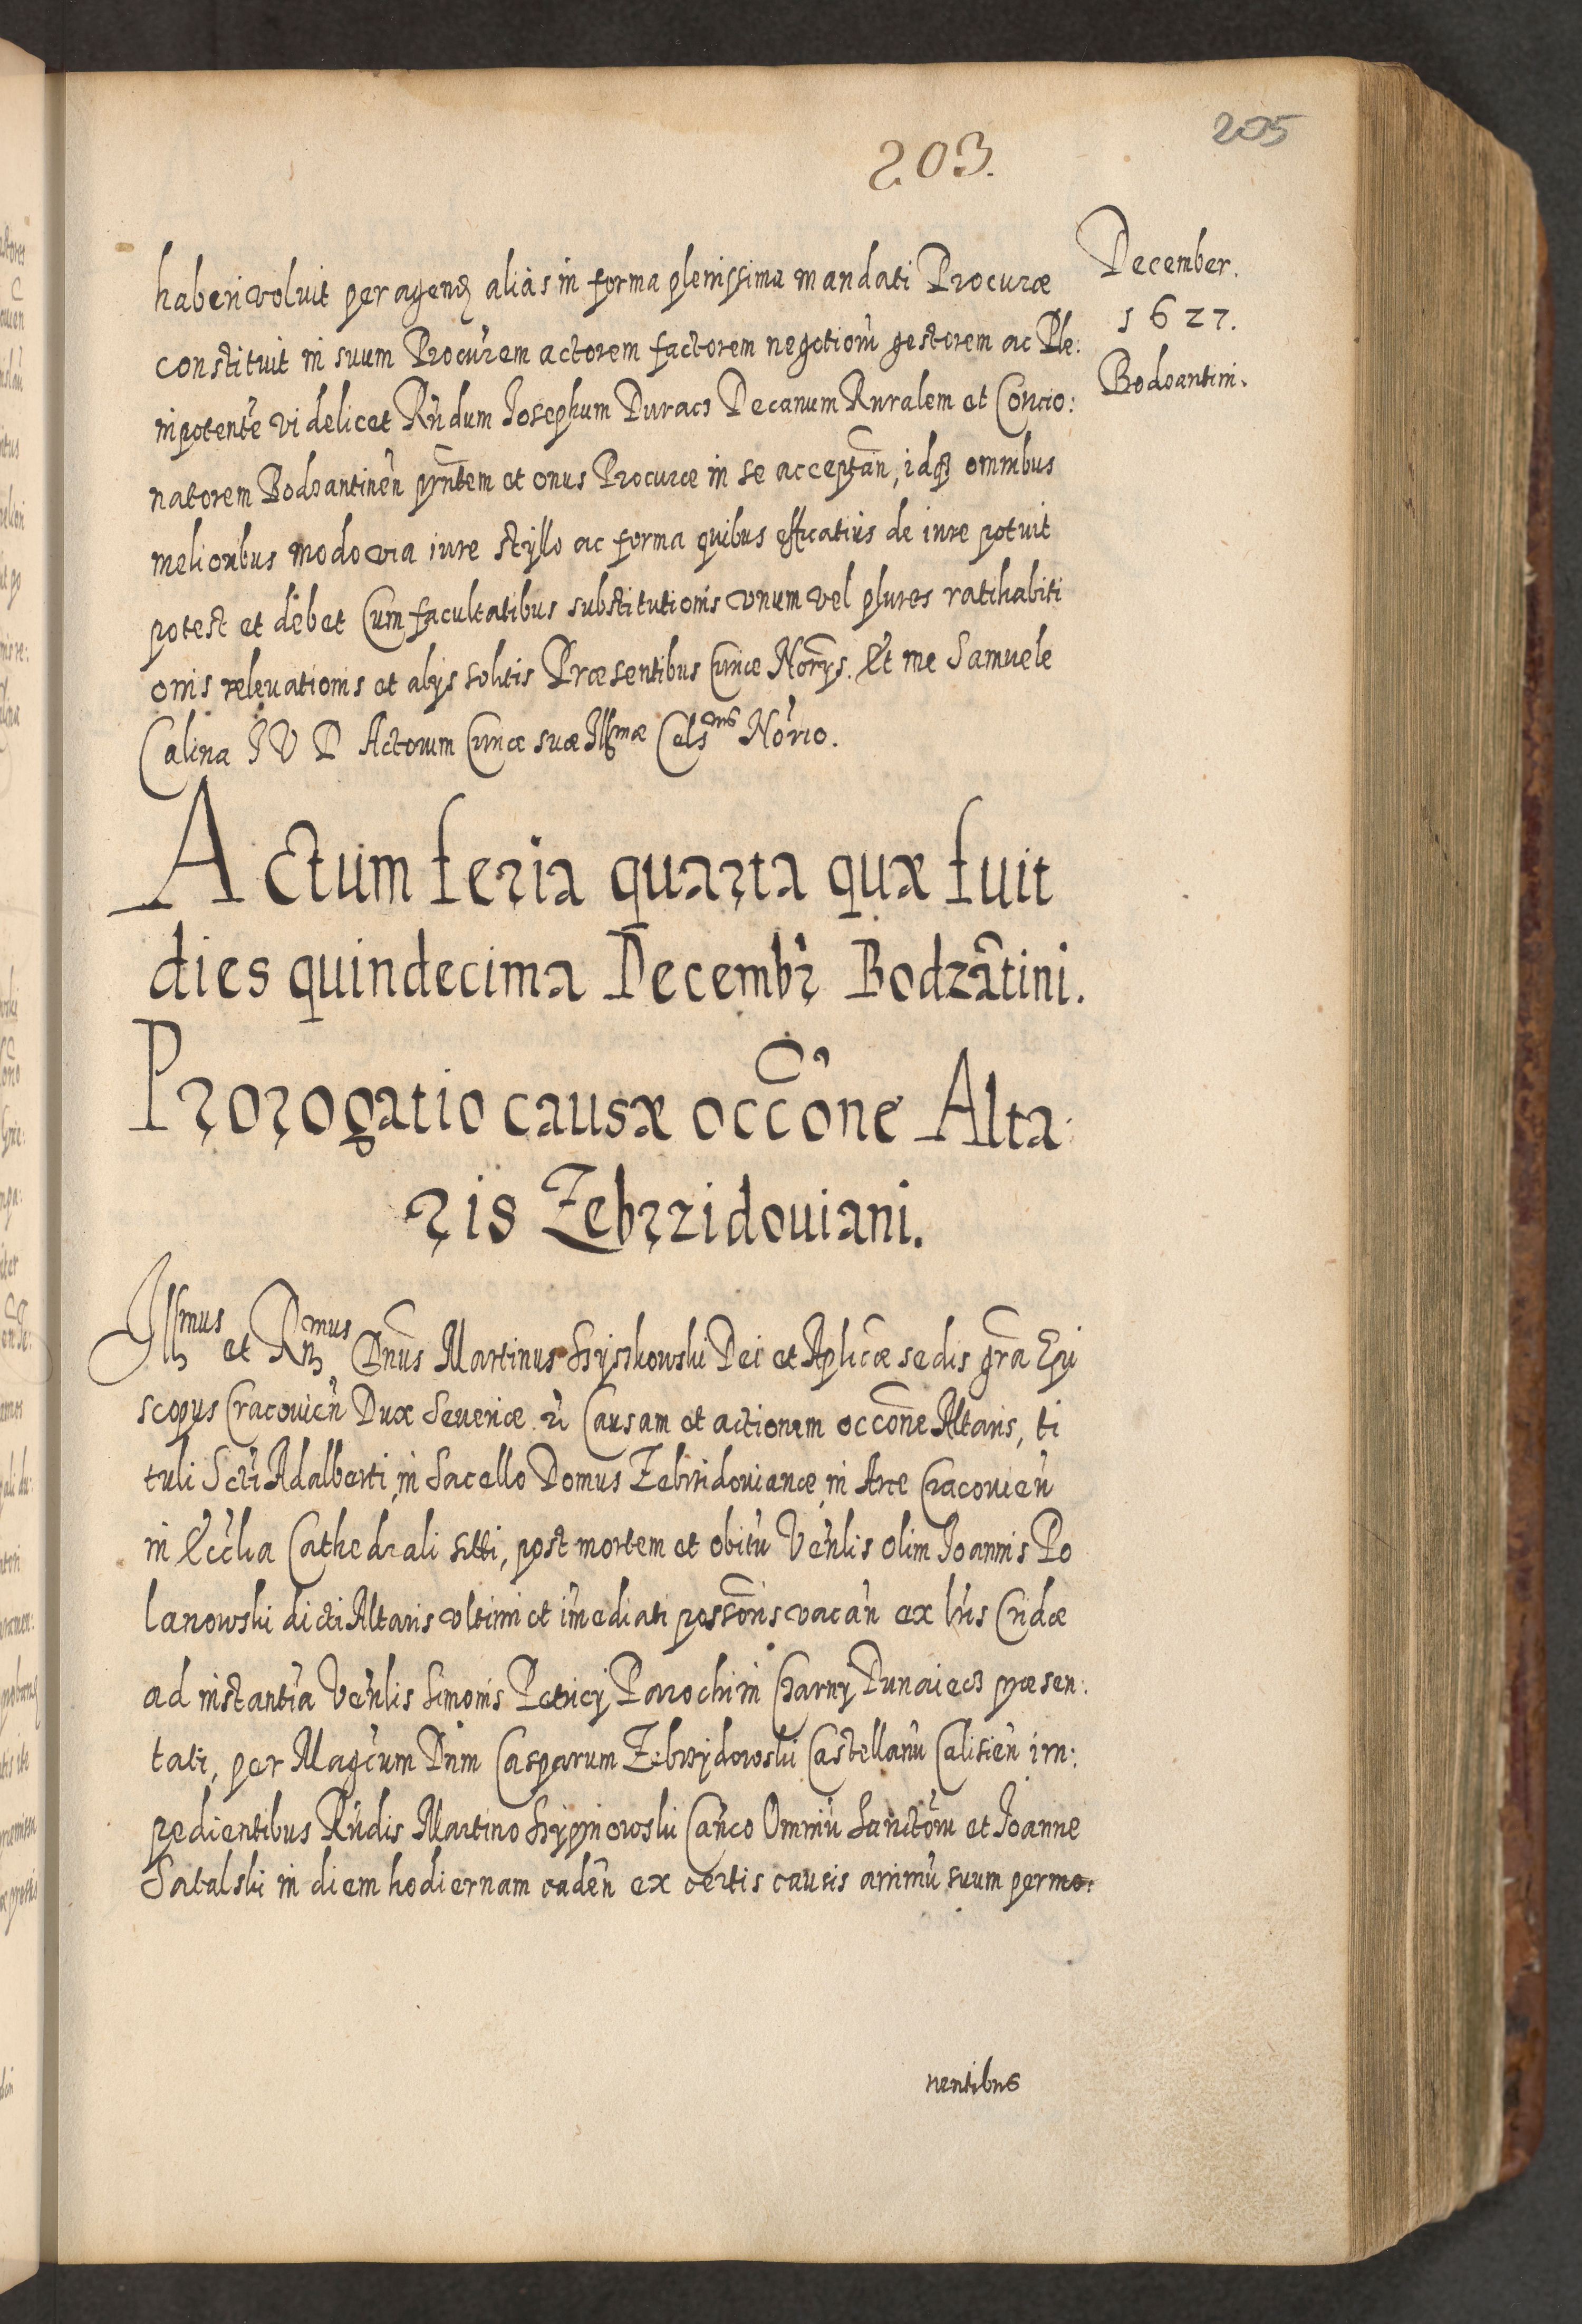 205
203.
December.
1627.
Bodzantini.
haberi voluit peragend alias in forma plenissima mandati Procuræ
constituit in suum Procurem actorem factorem negotiorũ gestorem ac Ple:
nipotentẽ videlicet Rndum Josephum Duracz Decanum Ruralem et Concio:
natorem Bodzantineñ pñtem et onus Procuræ in se acceptañ, idq omnibus
melioribus modo via iure styllo ac forma quibus efficatius de iure potuit
potest et debet Cum facultatibus substitutionis vnum vel plures ratihabiti
onis releuationis et alijs solitis Præsentibus Curiæ Norijs. Et me Samuele
Calina I V D Actorum Curiæ suæ Illmæ Celsnis Norio.
Actum feria quarta quæ fuit
dies quindecima Decembr Bodzãtini.
Prorogatio causæ occõne Alta:
ris Zebrzidouiani.
Illmus et Rmus Dnus Martinus Szyszkowski Dei et Aplicæ sedis gra Epi
scopus Cracouień Dux Seueriæ & Causam et actionem occone Altaris, ti
tuli Scti Adalberti, in Sacello Domus Zebrzidouianæ, in Arce Cracouień
in Ecclia Cathedrali siti, post mortem et obitũ Venlis olim Joannis Po
lanowski dicti Altaris vltimi et imediati possoris vacañ ex lris Cridæ
ad instantia Venlis Simonis Petricy Parochi in Czarny Dunaiecz præsen:
tati, per Magcum Dnm Casparum Zebrzydowski Castellanũ Calisień im:
pedientibus Rndis Martino Szypniowski Canco Omniũ Sanctorũ et Joanne
Satalski in diem hodiernam cadeñ ex certis causis animũ suum permo:
uentibus